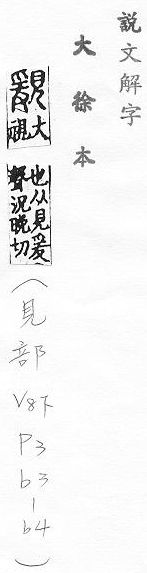 說文解字
大徐本
䙮大
視
也从見爰
聲況晚切
（見部 V8下 P3 b3-b4）